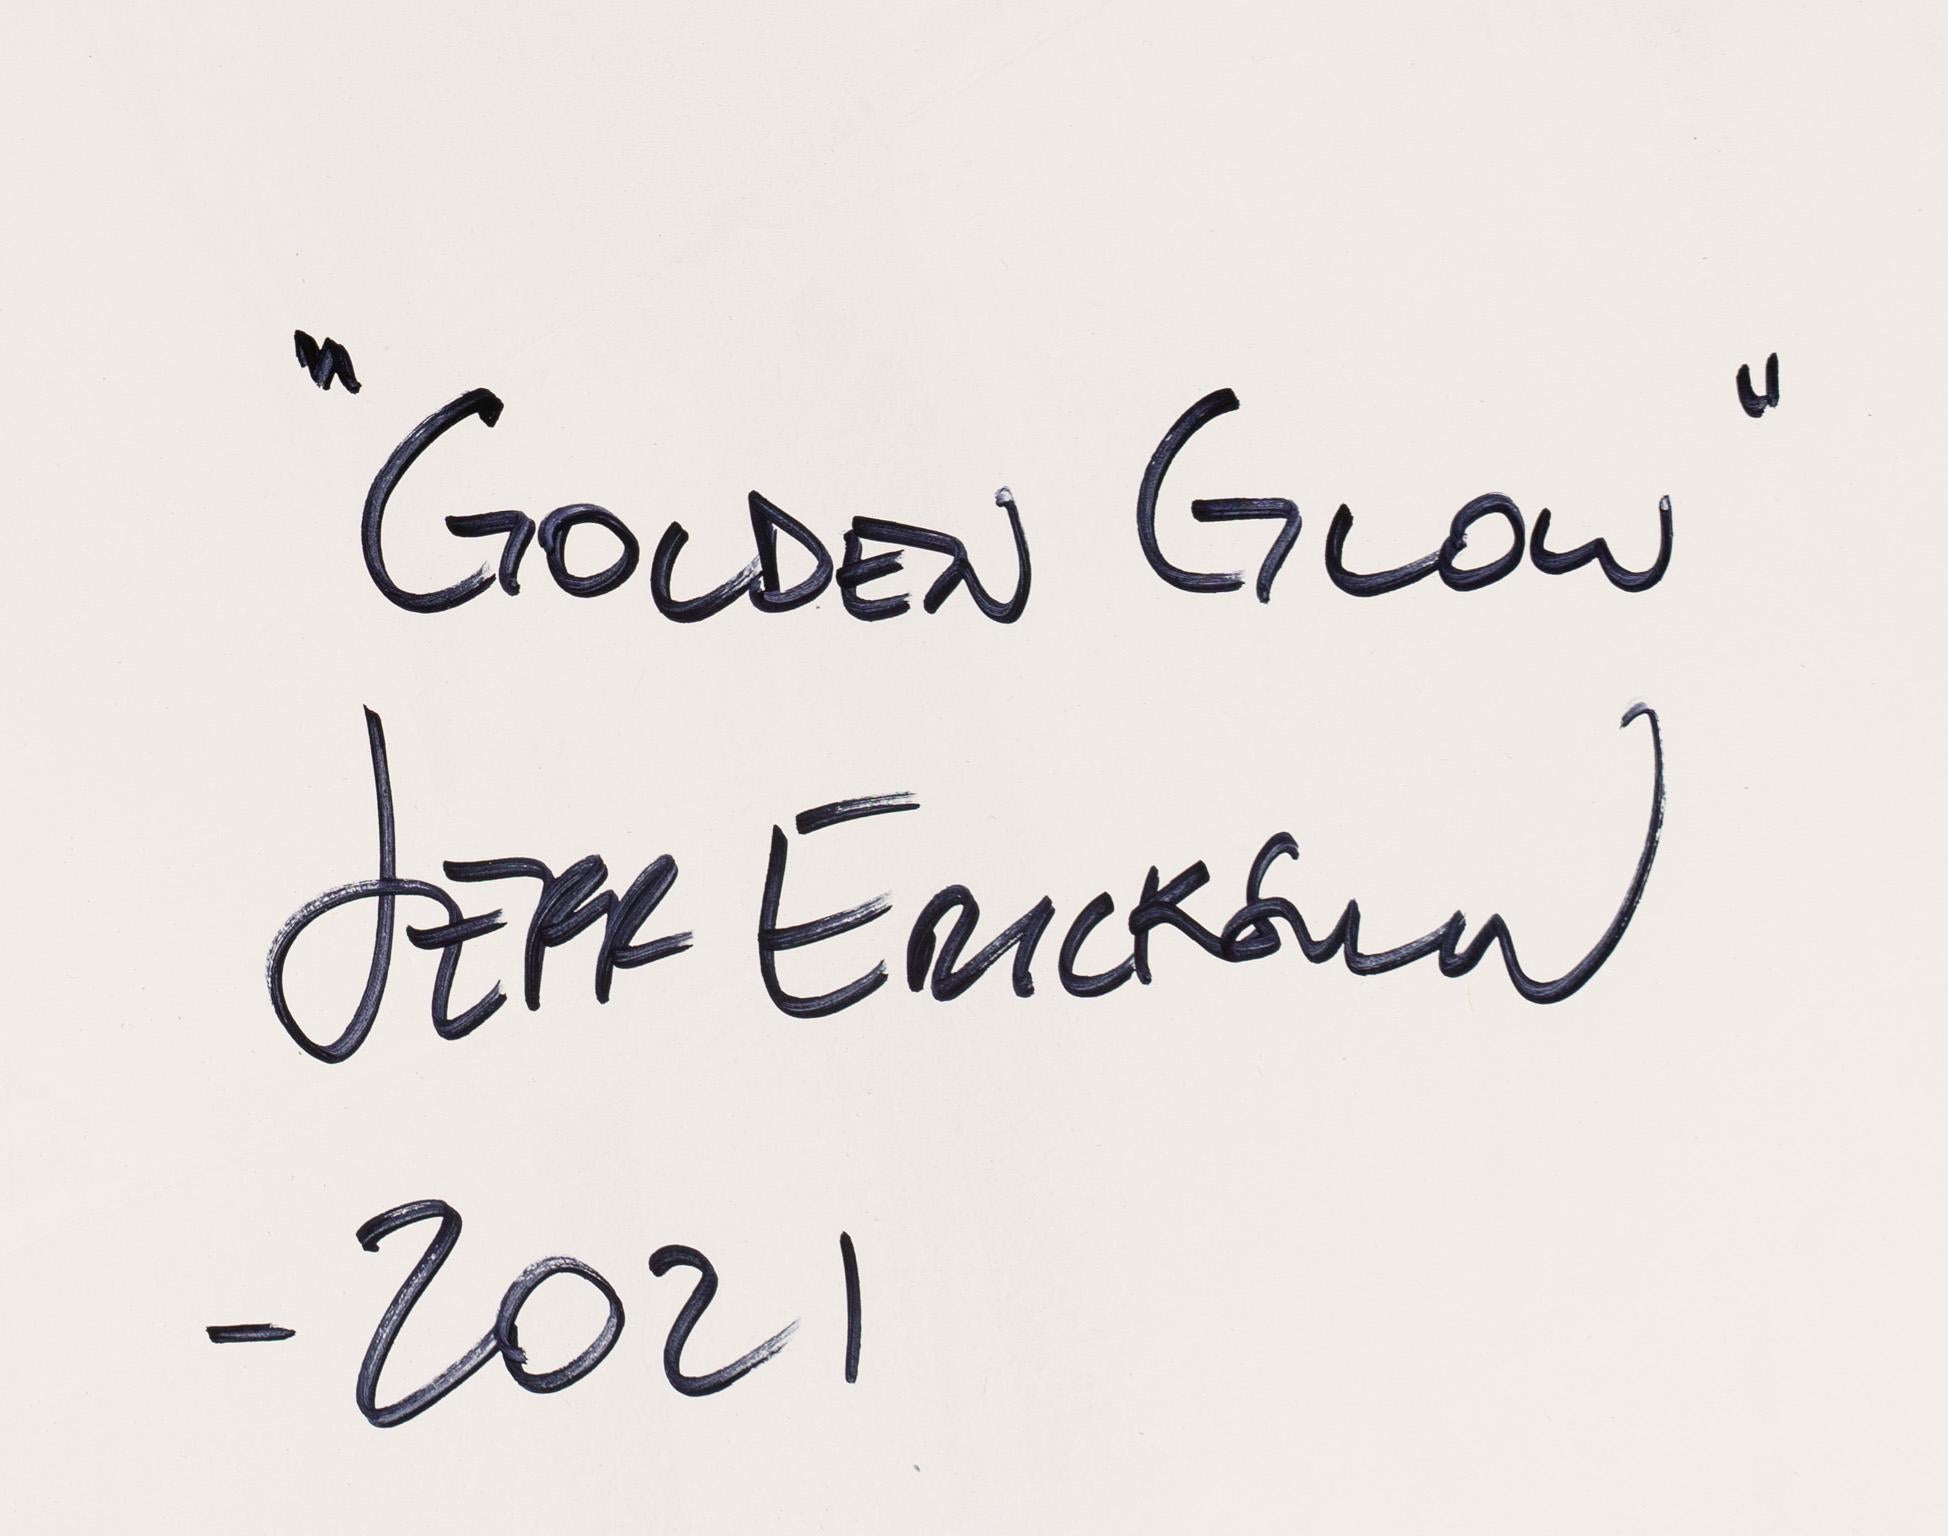 "GOLDEN GLOW"
JEFF ERICKSON
-2021